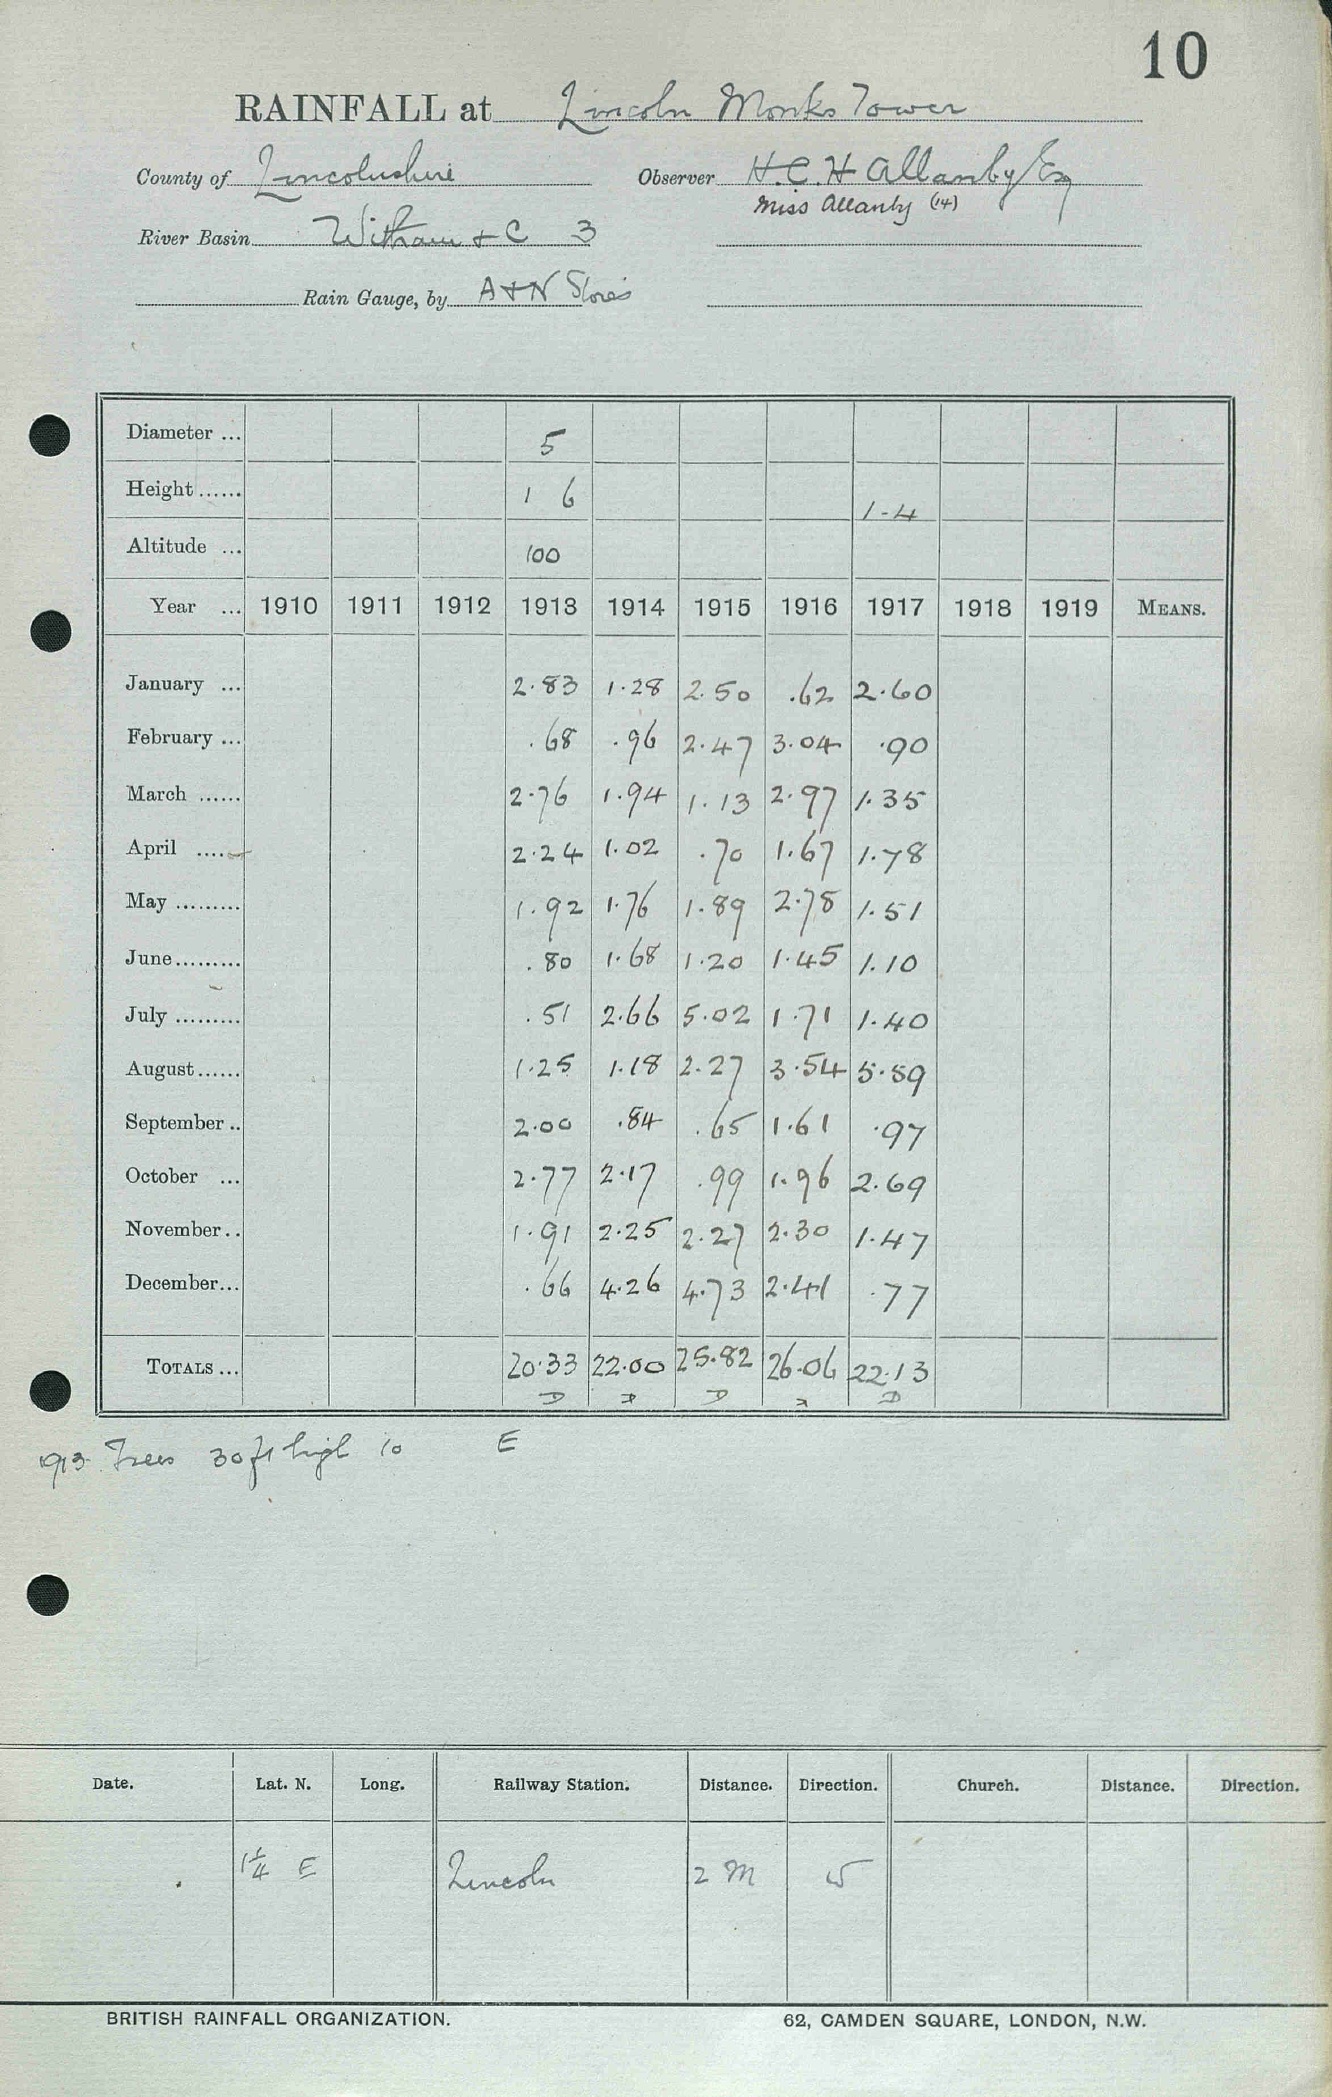 10
RAINFALL at Lincoln Monks Tower
County of Lincolnshire Observer H.C.H Allanby Esq
Miss Allanby (14)
River Basin Witham & C 3
Rain Gauge, by A & N Stores
Diameter ... 5
Height ...... 1 6 1-4
Altitude ... 100
Year ... 1910 1911 1912 1913 1914 1915 1916 1917 1918 1919 MEANS.
January ... 2.83 1.28 2.50 .62 2.60
February ... .68 .96 2.47 3.04 .90
March ...... 2.76 1.94 1.13 2.97 1.35
April .... 2.24 1.02 .70 1.67 1.78
May ......... 1.92 1.76 1.89 2.78 1.51
June ......... .80 1.68 1.20 1.45 1.10
July ......... .51 2.66 5.02 1.71 1.40
August ...... 1.25 1.18 2.27 3.54 5.59
September .. 2.00 .84 .65 1.61 .97
October ... 2.77 2.17 .99 1.96 2.69
November .. 1.91 2.25 2.27 2.30 1.47
December ... .66 4.26 4.73 2.41 .77
TOTALS ... 20.33 22.00 25.82 26.06 22.13
D D D D
1913 Trees 30 ft high 10 E
Date. Lat. N. Long. Railway Station. Distance. Direction. Church. Distance. Direction.
1 1/4 E Lincoln 2 M W
BRITISH RAINFALL ORGANIZATION. 62, CAMDEN SQUARE, LONDON, N.W.